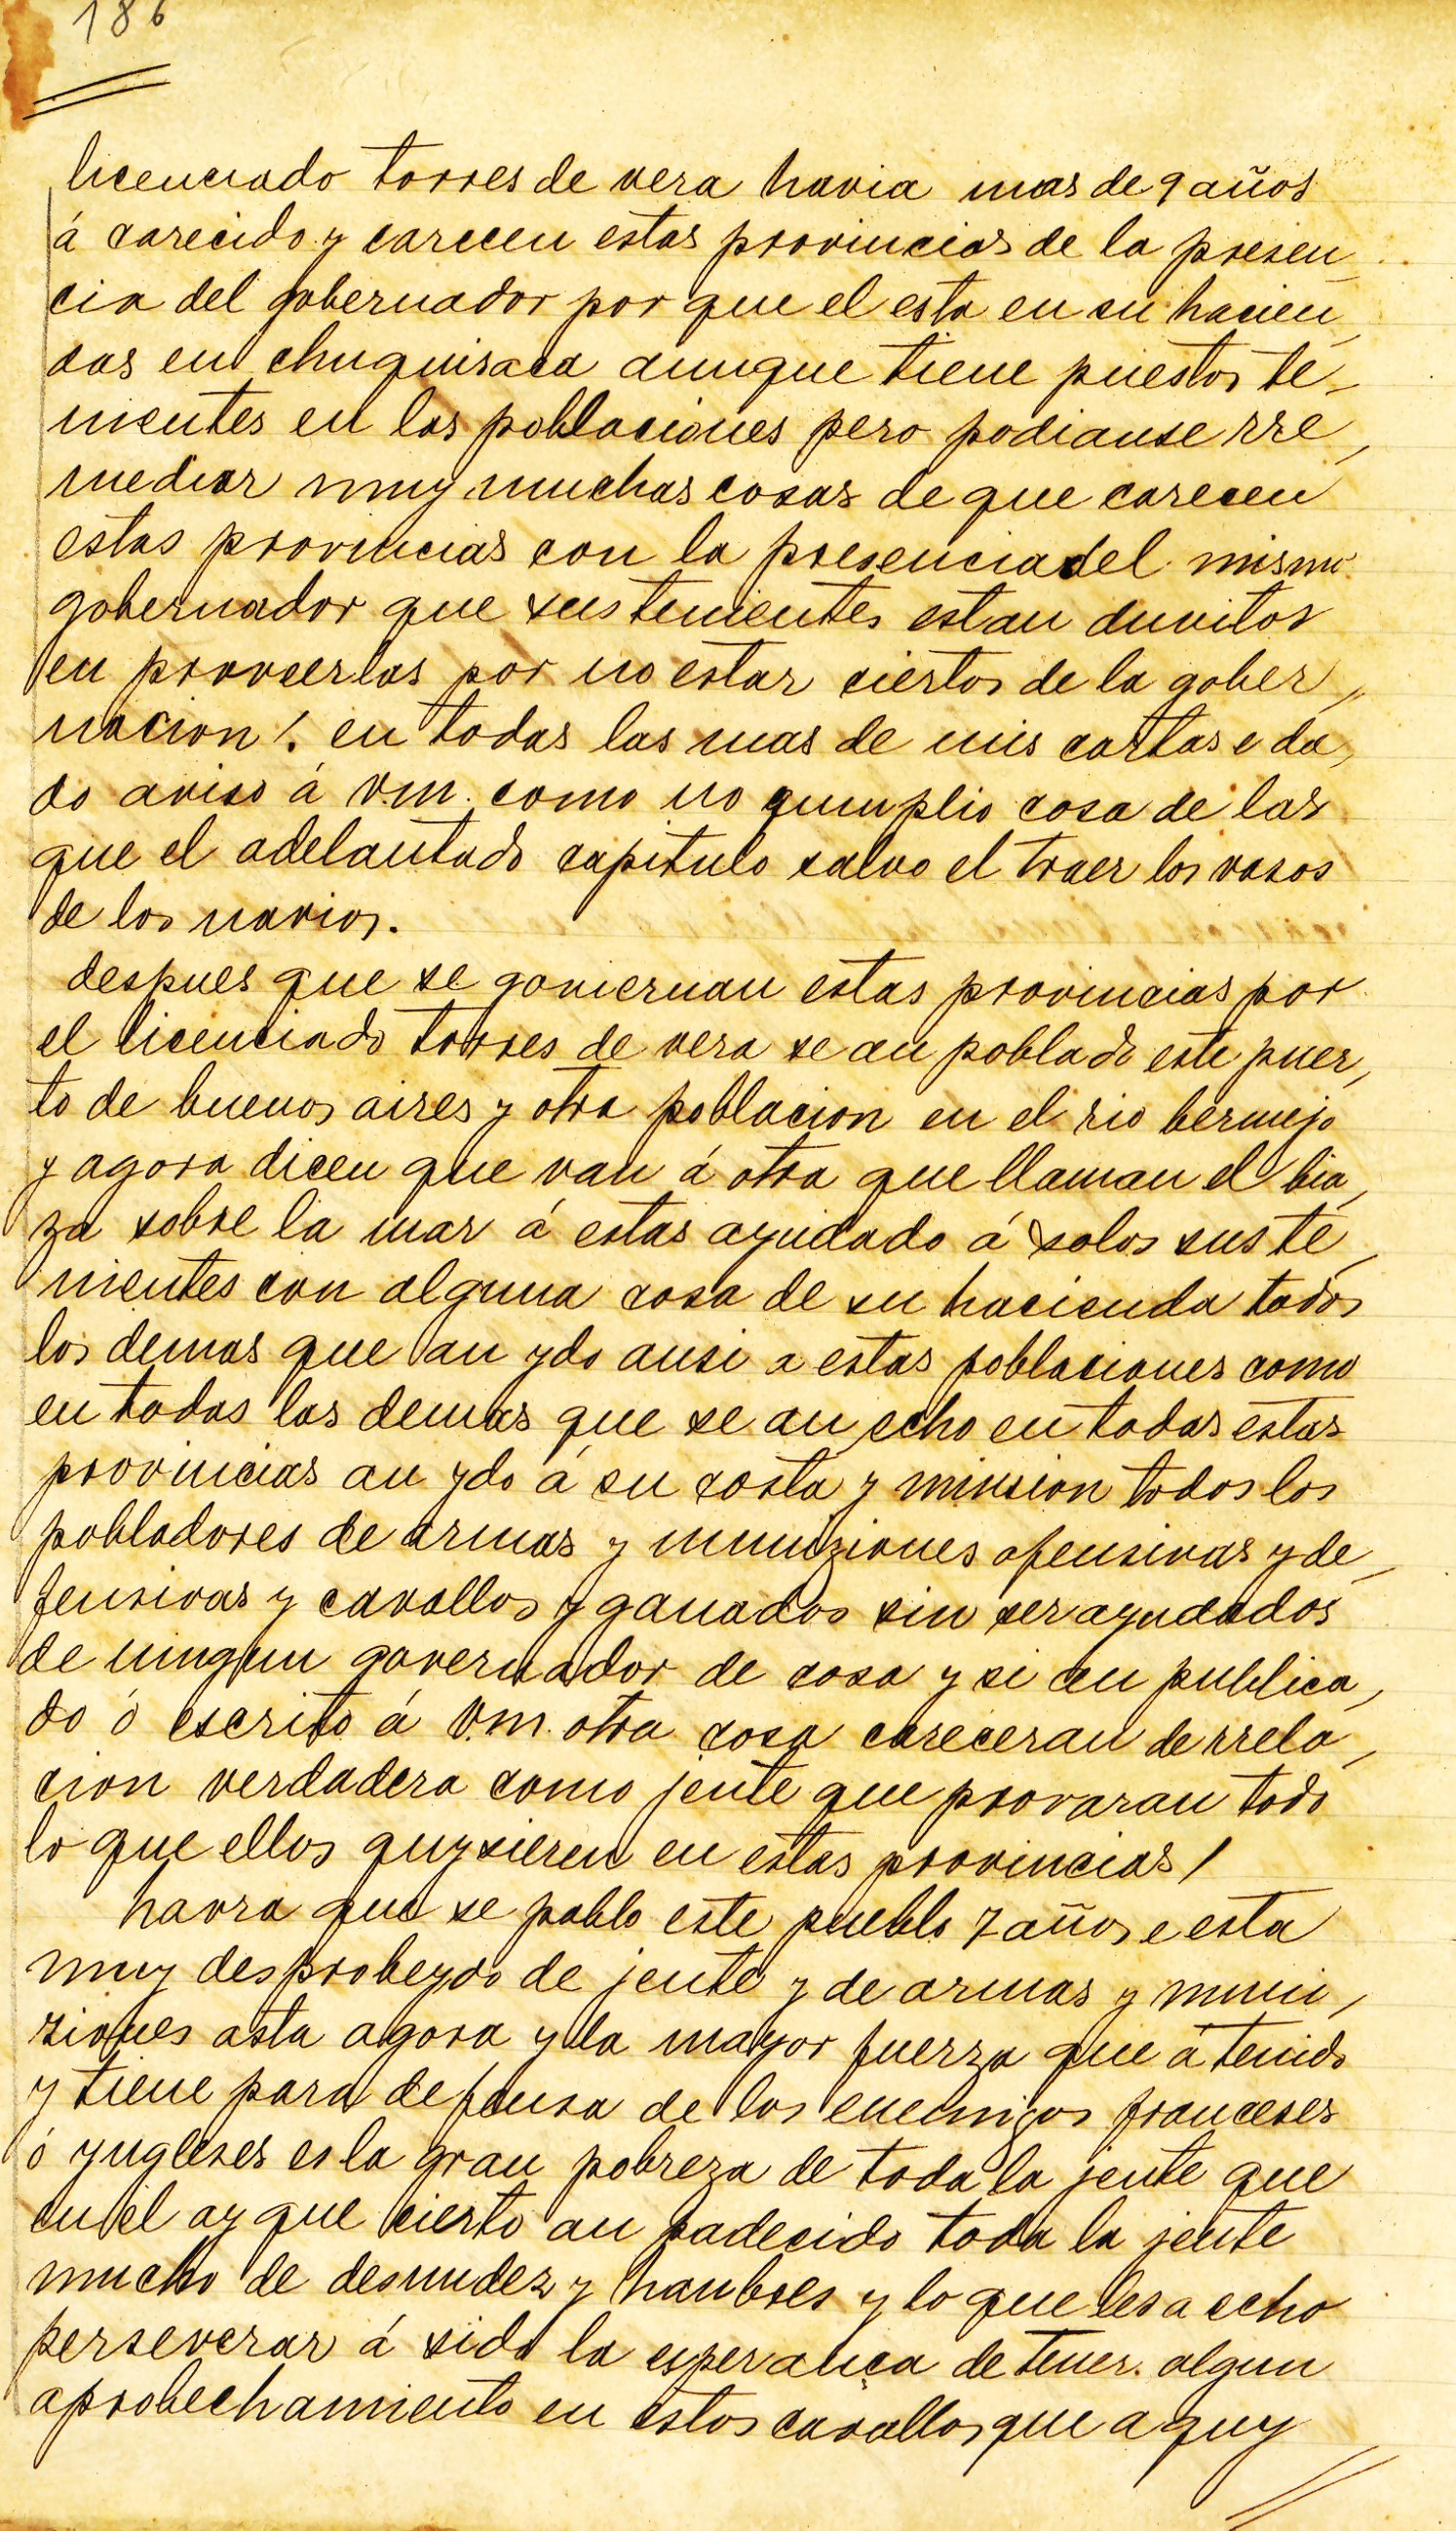 186
licenciado torres de vera havia mas de 9 años
á carecido y carecen estas provincias de la presen,
cia del gobernador por que el esta en su hacien,
das en chuquisaca aunque tiene puestos te,
nientes en las poblaciones pero podianse rre,
mediar muy muchas cosas de que carecen
estas provincias con la presencia del mismo
gobernador que sus tenientes estan duvitos
en proveerlas por no estar ciertos de la gober,,
nacion /. en todas las mas de mis cartas e da,
do aviso á v.m. como no qumplio cosa de las
que el adelantado capitulo salvo el traer los vasos
de los navios.
despues que se goviernan estas provincias por
el licenciado torres de vera se an poblado este puer,
to de buenos aires y otra poblacion en el rio bermejo
y agora dicen que van á otra que llaman el bia,
za sobre la mar á estas ayudado á solos sus te,
nientes con alguna cosa de su hacienda todos
los demas que an ydo ansi a estas poblaciones como
en todas las demas que se an echo en todas estas
provincias an ydo á su costa y minsion todos los
pobladores de armas y muniziones ofensivas y de,
fensivas y cavallos y ganados sin ser ayudados
de ningun governador de cosa y si an publica,
do ó escrito á v.m. otra cosa careceran de rrela,
cion verdadera como jente que provaran todo
lo que ellos quysieren en estas provincias /
havra que se poblo este pueblo 7 años e esta
muy desprobeydo de jente y de armas y muni,
ziones asta agora y la mayor fuerza que á tenido
y tiene para defensa de los enemigos franceses
ó yngleses es la gran pobreza de toda la jente que
en él ay que cierto an padecido toda la jente
mucho de desnudez y hanbres y lo que les a echo
perseverar á sido la esperança de tener. algun
aprobechamiento en estos cavallos que a quy